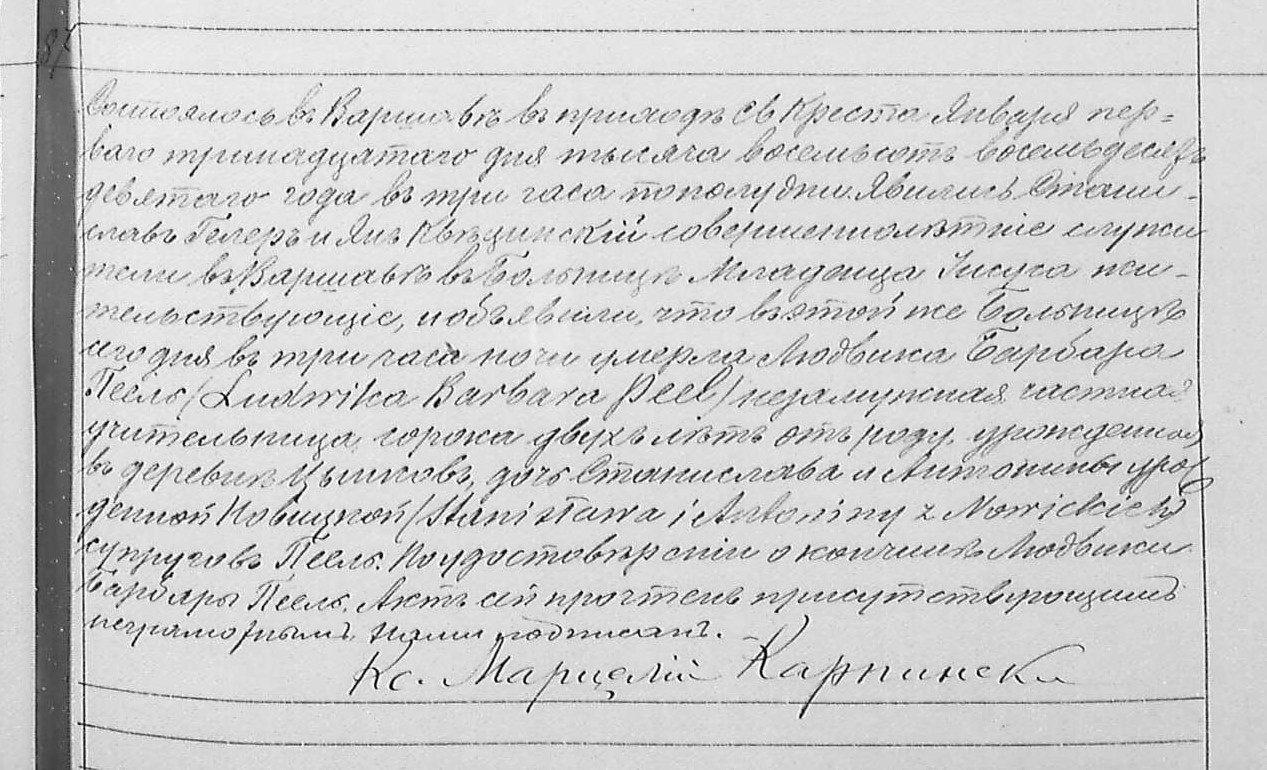 87
Состоялось въ Варшавѣ въ приходѣ Св Креста Января пер=
ваго тринадцатаго дня тысяча восемьсотъ восемьдесятъ
девятаго года въ три часа пополудни. Явились Стани-
славъ Гелеръ и Янъ совершеннолѣтніе служи
тели въ Варшавѣ въ Больницѣ Младенца Іисуса жи-
тельствующіе, и объявили, что въ этой же Больницѣ
сего дня въ три часа ночи умерла Людвика Барбара
Пеель (Ludwika Barbara Peel) незамужная частная
учительница, сорока двухъ лѣтъ отъ роду, урожденная
въ деревнѣ дочь Станислава и Антонины урож
денной Новицкой (Stanisława i Antoniny z Nowickich)
супруговъ Пеель. По удостовѣреніи о кончинѣ Людвики
Барбары Пеель. Актъ сей прочтенъ присутствующимъ
неграмотнымъ Нами подписан.
Кс. Марцелій Карпински